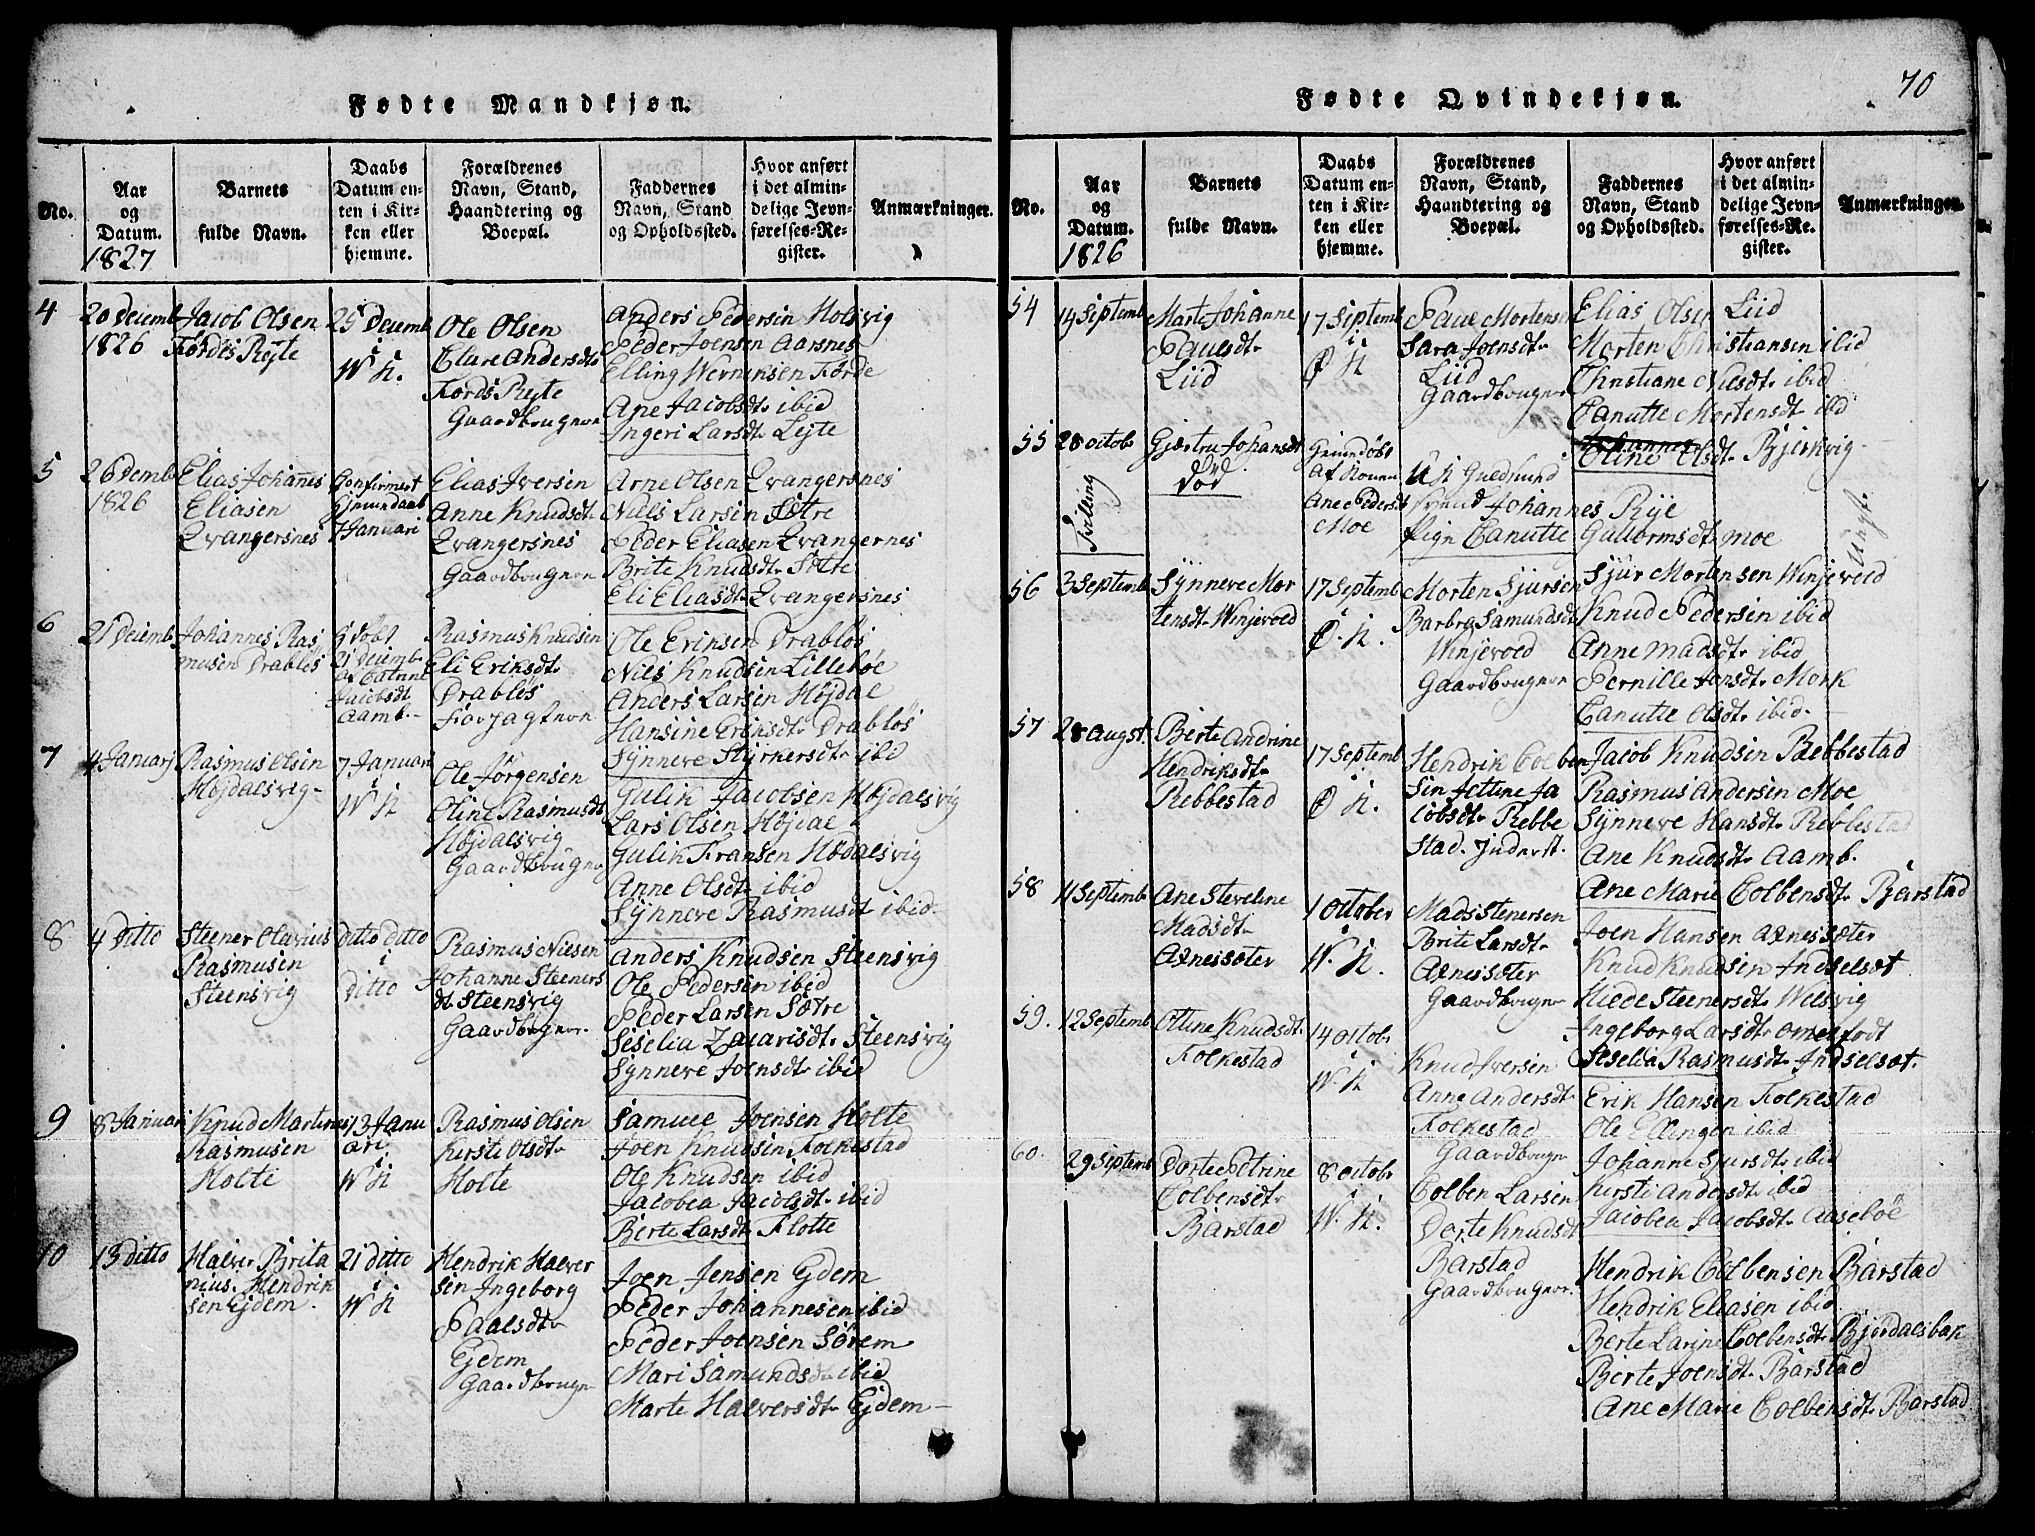 70
Fødte Mandkjøn.
No.
Aar og Datum.
1827
Barnets fulde Navn.
Daabs Datum enten i Kirken eller hjemme.
Forældrenes Navn, Stand, Haandtering og Boepæl.
Faddernes Navn, Stand og Opholdssted.
Hvor anført i det almindelige Jevnførelses-Register.
Anmærkninger.
4
20 Decemb
1826
Jacob Olsen
Førdes Rejte
25 Decemb
i
W K.
Ole Olsen
Clare Andersdt
Førds Rejte
Gaardbrugere
Anders Pedersen Holsvig
Peder Joensen Aarsnes
Elling Wernersen Førde
Ane Jacobsdt ibid
Ingeri Larsdt Lejte
5
26 Demb
1826
Elias Johannes
Eliasen
Qvangersnes
Confirmert
Hjemmdaab
7 Januari
Elias Iversen
Anne Knudsdt
Qvangersnes
Gaardbrugere
Arne Olsen Qvangersnes
Niels Larsen Sætre
Peder Eliasen Qvangernes
Brite Knudsdt Sætre
Eli Eliasdt Qvangersnes
6
21 Decemb
Johannes Ras
musen Drabløs
21 Decemb
af Catrine
Jacobsdt
Aamb.
Rasmus Knudsen
Eli Eriksdt
Drabløs
Ole Eriksen Drabløs
Niels Knudsen Lillebøe
Anders Larsen Højdal
Hansine Eriksdt Drabløs
Synneve Styrkersdt ibid
7
4 Januarj
Rasmus Olsen
Højdalsvig
7 Januar
i
W K
Ole Jørgensen
Oline Rasmusdt
Højdalsvig
Gaardbruger
Gulik Jacobsen Højdalsvig
Lars Olsen Højdal
Gulik Fransen Hødalsvig
Anne Olsdt ibid
Synneve Rasmusdt ibid
8
4 Ditto
Steener Olavius
Rasmusen
Steensvig
Ditto Ditto
i
Ditto
Rasmus Nilsen
Johanne Steeners
dt Steensvig
Gaardbruger.
Anders Knudsen Steensvig
Ole Pedersen ibid
Peder Larsen Sætre
Seselia Zacarisdt Steensvig
Synneve Joensdt ibid
9
8 Januari
Knud Martinus
Rasmusen
Holte
13 Janu
ari
i
W K
Rasmus Olsen
Kirsti Olsdt
Holte
Samuel Joensen Holte
Joen Knudsen Folkestad
Ole Knudsen ibid
Jacobea Jacobsdt ibid
Berte Larsdt Flotte
10
13 Ditto
Halver Brita
nius. Hendrik
sen Ejdem.
21 Ditto
i
W K
Hendrik Halver
sen Ingeborg
Paalsdt
Ejdem
Gaardbruger
Joen Jensen Ejdem
Peder Johannesen ibid
Peder Joensen Sørem
Mari Samundsd ibid
Marte Halversdt Ejdem
Fødte Qvindekjøn.
No.
Aar og Datum.
1826
Barnets fulde Navn.
Daabs Datum enten i Kirken eller hjemme.
Forældrenes Navn, Stand, Haandtering og Boepæl.
Faddernes Navn, Stand og Opholdssted.
Hvor anført i det almindelige Jevnførelses-Register.
Anmærkninger.
54
14 Septemb
Marte Johanne
Paulsdt
Liid
17 Septemb
i
Ø K
Paul Mortensen
Sara Joensdt
Liid
Gaardbruger
Elias Olsen Liid
Morten Christiansen ibid
Christiane Nilsdt ibid
Canutte Mortensdt ibd
Oline Olsdt Bjerkvig
55
28 octob
Tviling
Gjertru Johansdt
Død
Hjemdøbt
af Konen
Ane Pedersdt
Moe
Johannes Rye
Pign Canutte Guttormsdt moe
Uægt.
56
3 Septemb
Synneve Mor
tensdt Winjevold
17 Septemb
i
Ø. K.
Morten Sjursen
Barbrg Samundsdt
Winjevold
Gaardbruger
Sjur Mortensen Winjevold
Knud Pedersen ibid
Anne Madsdt ibid
Pernille Jensdt Mork
Canutte Olsdt ibid.
57
28 augst.
Berte Andrine
Hendriksdt
Rebbestad
17 Septemb
i
Ø K.
Hendrik Colben
sen Jettine Ja
cobsdt Rebbe
stad. Inderst.
Jacob Knudsen Rebbestad
Rasmus Andersen Moe
Synneve Hansdt Rebbestad
Ane Knudsdt Aamb.
Ane Marie Colbensdt Barstad
58
11 Septemb
Ane Steveline
Madsdt
Aanessæter
1 October
i
W. K.
Mads Stenersen
Brite Larsdt
Aanessæter
Gaardbruger
Joen Hansen Aanessæter
Knud Knudsen Indselset
Hilde Steenersdt Welsvig
Ingeborg Larsdt omelfodt
Seselia Rasmusdt Indselset.
59.
12 Septemb
Oline Knudsdt
Folkestad
14 octobr
i
W. K
Knud Iversen
Anne Andersdt
Folkestad
Gaardbruger
Erik Hansen Folkestad
Ole Ellingen ibid
Johanne Sjursdt ibid
Kirsti Andersdt ibid
Jacobea Jacobsdt Aasebøe
60.
29 Septemb
Dorte Petrine
Colbensdt
Barstad
8 octobr
i
W. K.
Colben Larsen
Dorte Knudsdt
Barstad
Gaardbruger.
Hendrik Colbensen Barstad
Hendrik Eliasen ibid
Berte Larine Colbensdt Bjørdalsbak
Berte Joensdt Barstad
Ane Marie Colbensdt Barstad